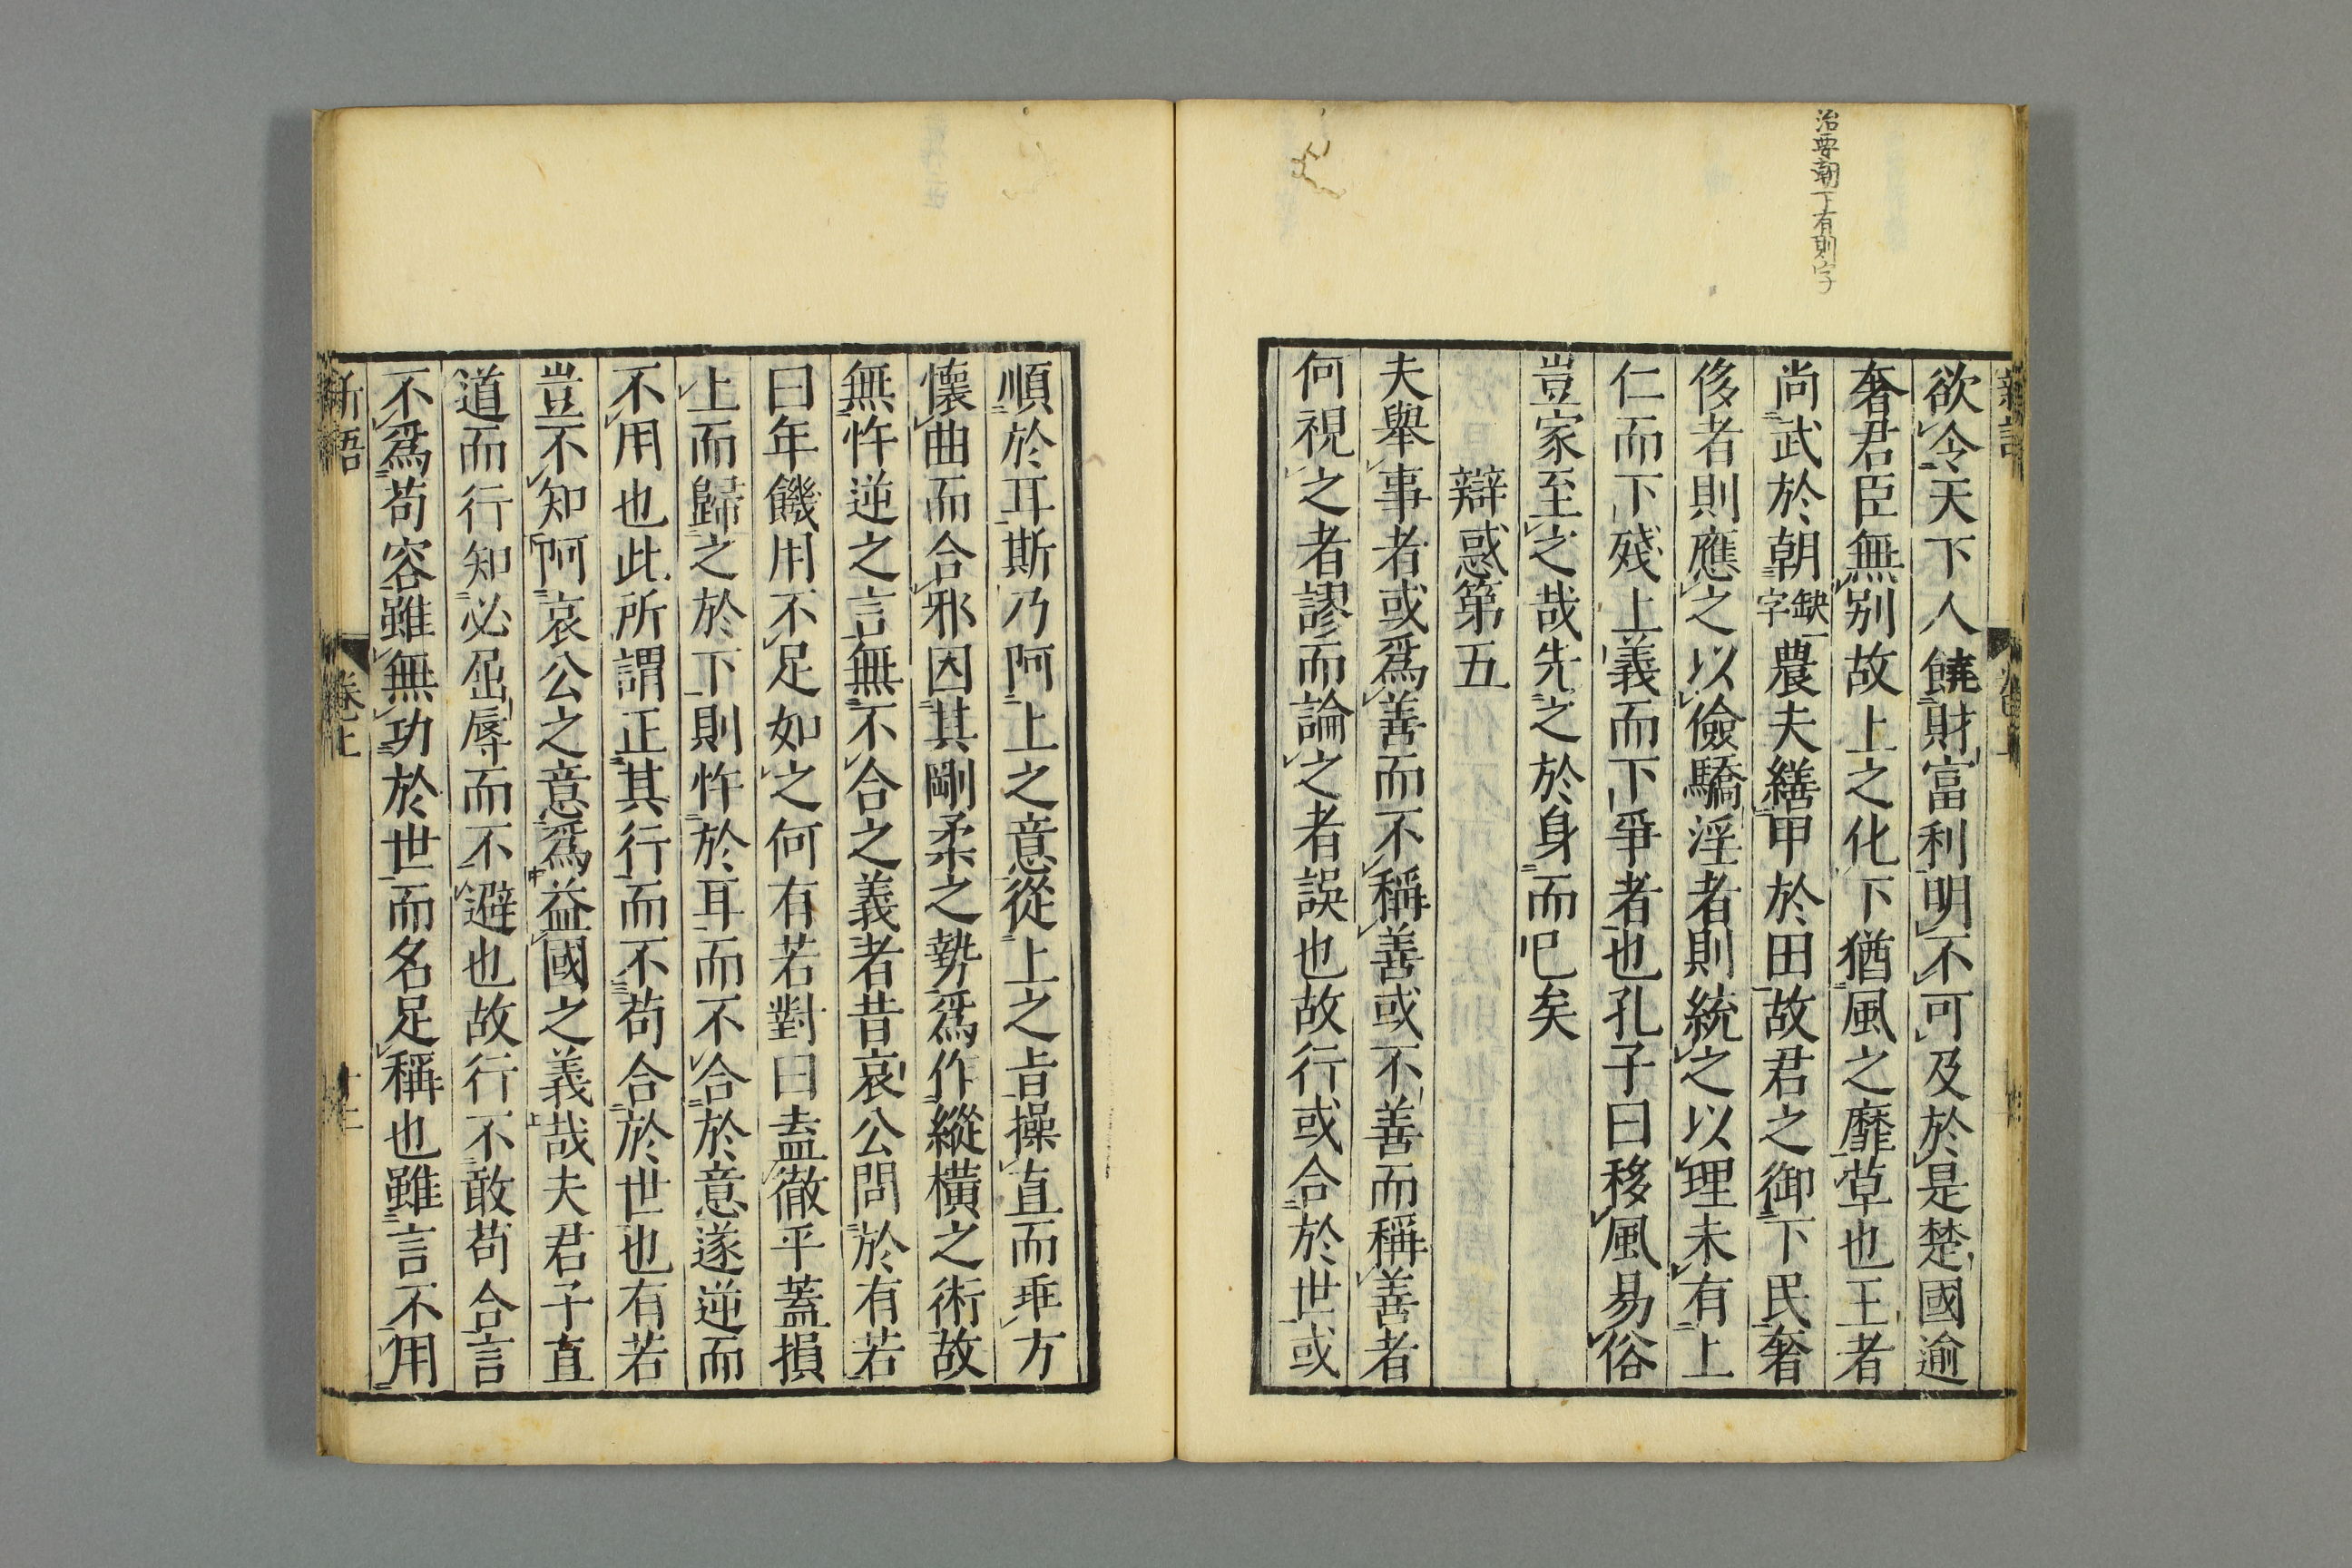 治要朝下有則字
欲令天下人饒財富利明不可及於是楚國逾
奢君臣無別故上之化下猶風之靡草也王者
尚武於朝缺一字農夫繕甲於田故君之御下民奢
侈者則應之以儉驕淫者則統之以理未有上
仁而下殘上義而下爭者也孔子曰移風易俗
豈家至之哉先之於身而已矣
辯惑第五
夫舉事者或爲善而不稱善或不善而稱善者
何視之者謬而論之者誤也故行或合於世或
順於耳斯乃阿上之意從上之旨操直而乖方
懷曲而合邪因其剛柔之勢爲作縱橫之術故
無忤逆之言無不合之義者昔哀公問於有若
曰年饑用不足如之何有若對曰盍徹乎蓋損
上而歸之於下則忤於耳而不合於意遂逆而
不用也此所謂正其行而不苟合於世也有若
豈不知阿哀公之意爲益國之義哉夫君子直
道而行知必屈辱而不避也故行不敢苟合言
不爲苟容雖無功於世而名足稱也雖言不用
新語
卷上
十二